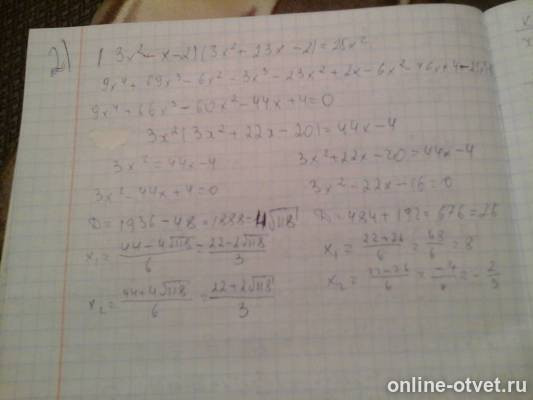 2) (3x² - x - 2)(3x² + 23x - 2) = 25x²
9x⁴ + 69x³ - 6x² - 3x³ - 23x² + 2x - 6x² - 46x + 4 - 25x²
9x⁴ + 66x³ - 60x² - 44x + 4 = 0
3x²(3x² + 22x - 20) = 44x - 4
3x² = 44x - 4
3x² + 22x - 20 = 44x - 4
3x² - 44x + 4 = 0
3x² - 22x - 16 = 0
D = 1936 - 48 = 1888 = 4√118
D = 484 + 192 = 676 = 26
x₁ = (44 - 4√118)/6 = (22 - 2√118)/3
x₁ = (22 + 26)/6 = 48/6 = 8
x₂ = (44 + 4√118)/6 = (22 + 2√118)/3
x₂ = (22 - 26)/6 = -4/6 = -2/3
online-otvet.ru